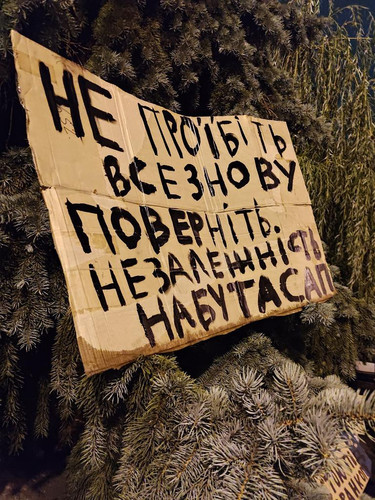 НЕ ПРОЇБІТЬ
ВСЕ ЗНОВУ
ПОВЕРНІТЬ.
НЕЗАЛЕЖНІСТЬ
НАБУ ТА САП